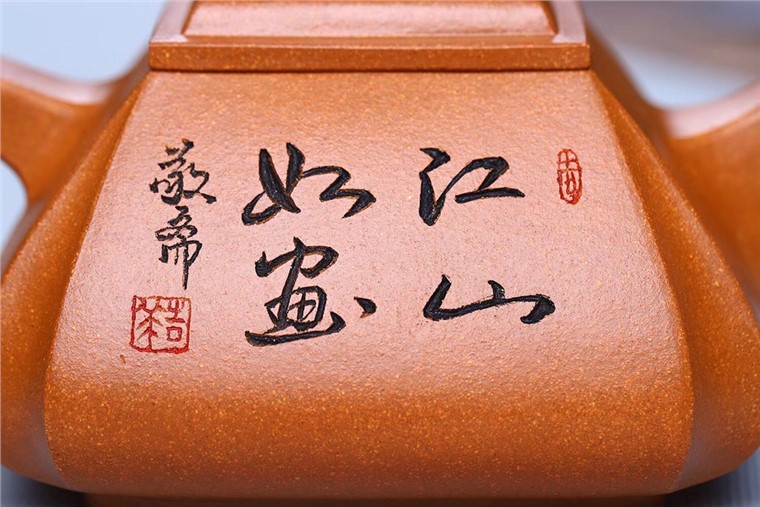 江山
如画
敬斋